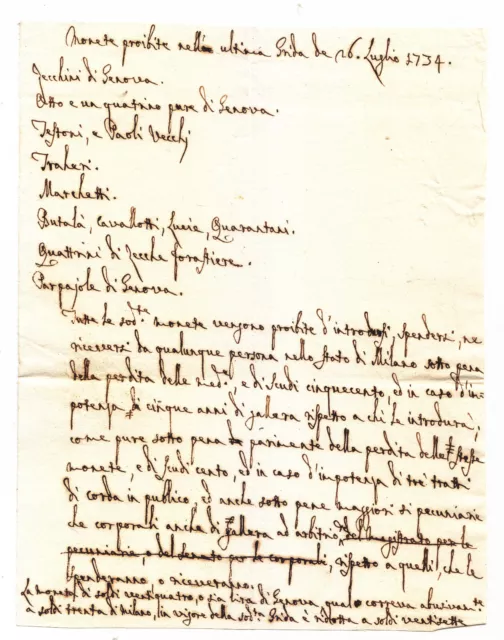 Monete proibite nell' ultima Grida de 26. Luglio 1734.
Zecchini di Genova.
Otto e un quatrino pure di Genova.
Testoni, e Paoli Vecchj
Traheri.
Marchetti.
Butalà, Cavallotti, Lucia, Quarantani.
Quattrini di Zecche forastiere.
Parpajole di Genova.
Tutte le sod.te monete vengono proibite d'introdursi, spendersi, ne
riceversi da qualunque persona nello Stato di Milano sotto pena
della perdita delle med.e, e di Scudi cinquecento, ed in caso d'im-
potenza di cinque anni di galera rispetto a chi le introdurà;
come pure sotto pena parimente della perdita delle stesse
monete, e di Scudi cento, ed in caso d'impotenza di trè tratti
di corda in publico, ed anche sotto pene maggiori sì pecuniarie
che corporali anche di galera ad arbitrio del magistrato per le
pecuniarie, o del Senato per le corporali, rispetto a quelli, che le
spenderanno, o riceveranno.
La moneta di soldi ventiquatro, o sia lira di Genova, qual correva abusivam.te
a soldi trenta di Milano, in vigore della sod.a Grida è ridotta a soldi ventisette